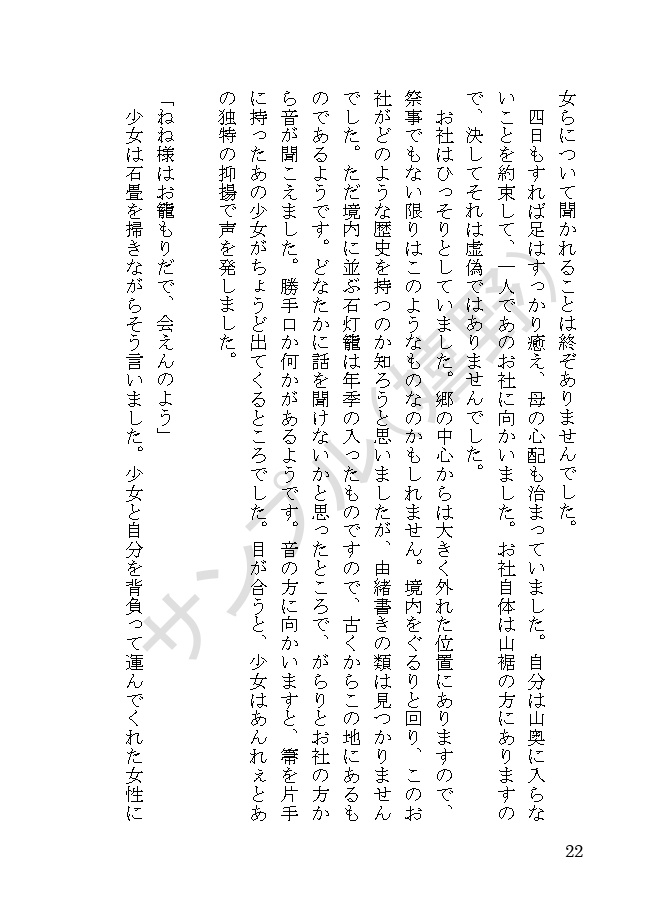 女らについて聞かれることは終ぞありませんでした。
四日もすれば足はすっかり癒え、母の心配も治まっていました。自分は山奥に入らな
いことを約束して、一人であのお社に向かいました。お社自体は山裾の方にありますの
で、決してそれは虚偽ではありませんでした。
お社はひっそりとしていました。郷の中心からは大きく外れた位置にありますので、
祭事でもない限りはこのようなものなのかもしれません。境内をぐるりと回り、このお
社がどのような歴史を持つのか知ろうと思いましたが、由緒書きの類は見つかりません
でした。ただ境内に並ぶ石灯籠は年季の入ったものですので、古くからこの地にあるも
のであるようです。どなたかに話を聞けないかと思ったところで、がらりとお社の方か
ら音が聞こえました。勝手口か何かがあるようです。音の方に向かいますと、箒を片手
に持ったあの少女がちょうど出てくるところでした。目が合うと、少女はあんれぇとあ
の独特の抑揚で声を発しました。
「ねね様はお籠もりだで、会えんのよう」
少女は石畳を掃きながらそう言いました。少女と自分を背負って運んでくれた女性に
サンプル（嬉野）
22